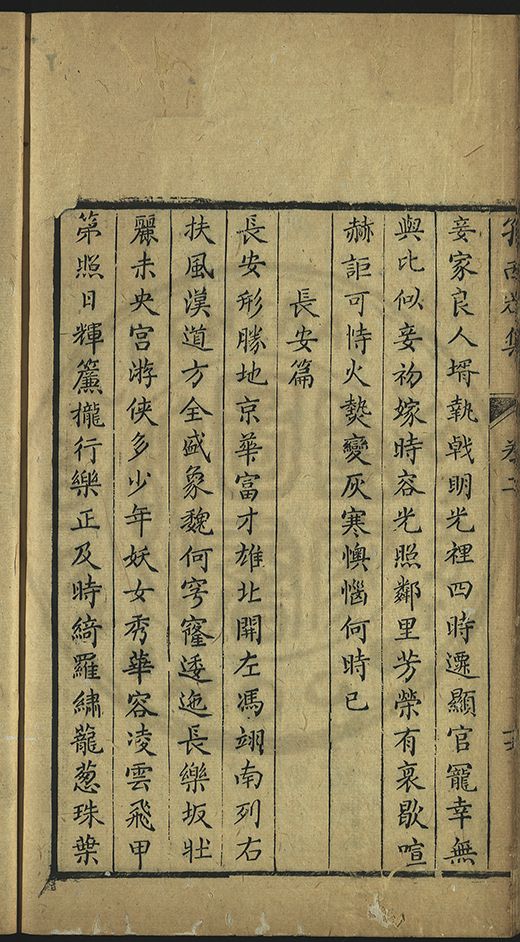 卷二
妾家良人壻執戟明光裡四時遷顯官寵幸無
與比似妾初嫁時容光照鄰里芳榮有衰歇喧
赫詎可恃火𤍠變灰寒懊惱何時已
長安篇
長安形勝地京華富才雄北開左馮翊南列右
扶風漢道方全盛象魏何穹窿逶迤長樂坂壯
麗未央宮游俠多少年妖女秀華容凌雲飛甲
第照日輝簾櫳行樂正及時綺羅繡龍葱珠葉